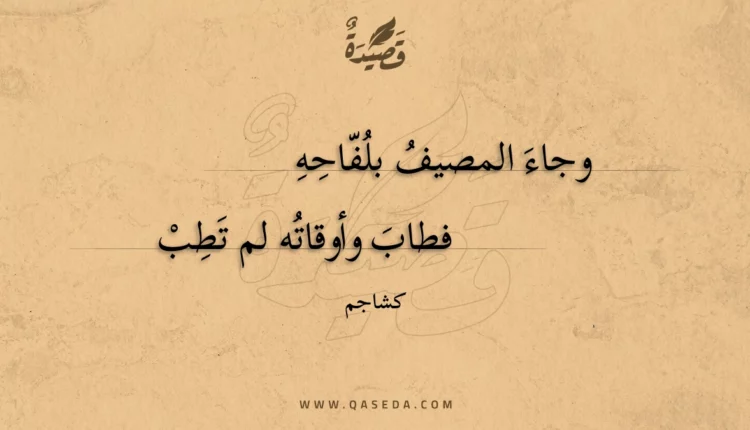 قَصِيْدَةٌ
وجاءَ المصيفُ بلُفّاحِهِ
فطابَ وأوقاتُه لم تَطِبْ
كشاجم
WWW.QASEDA.COM